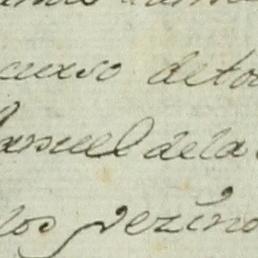 curso deto
Manuel dela
los vezino